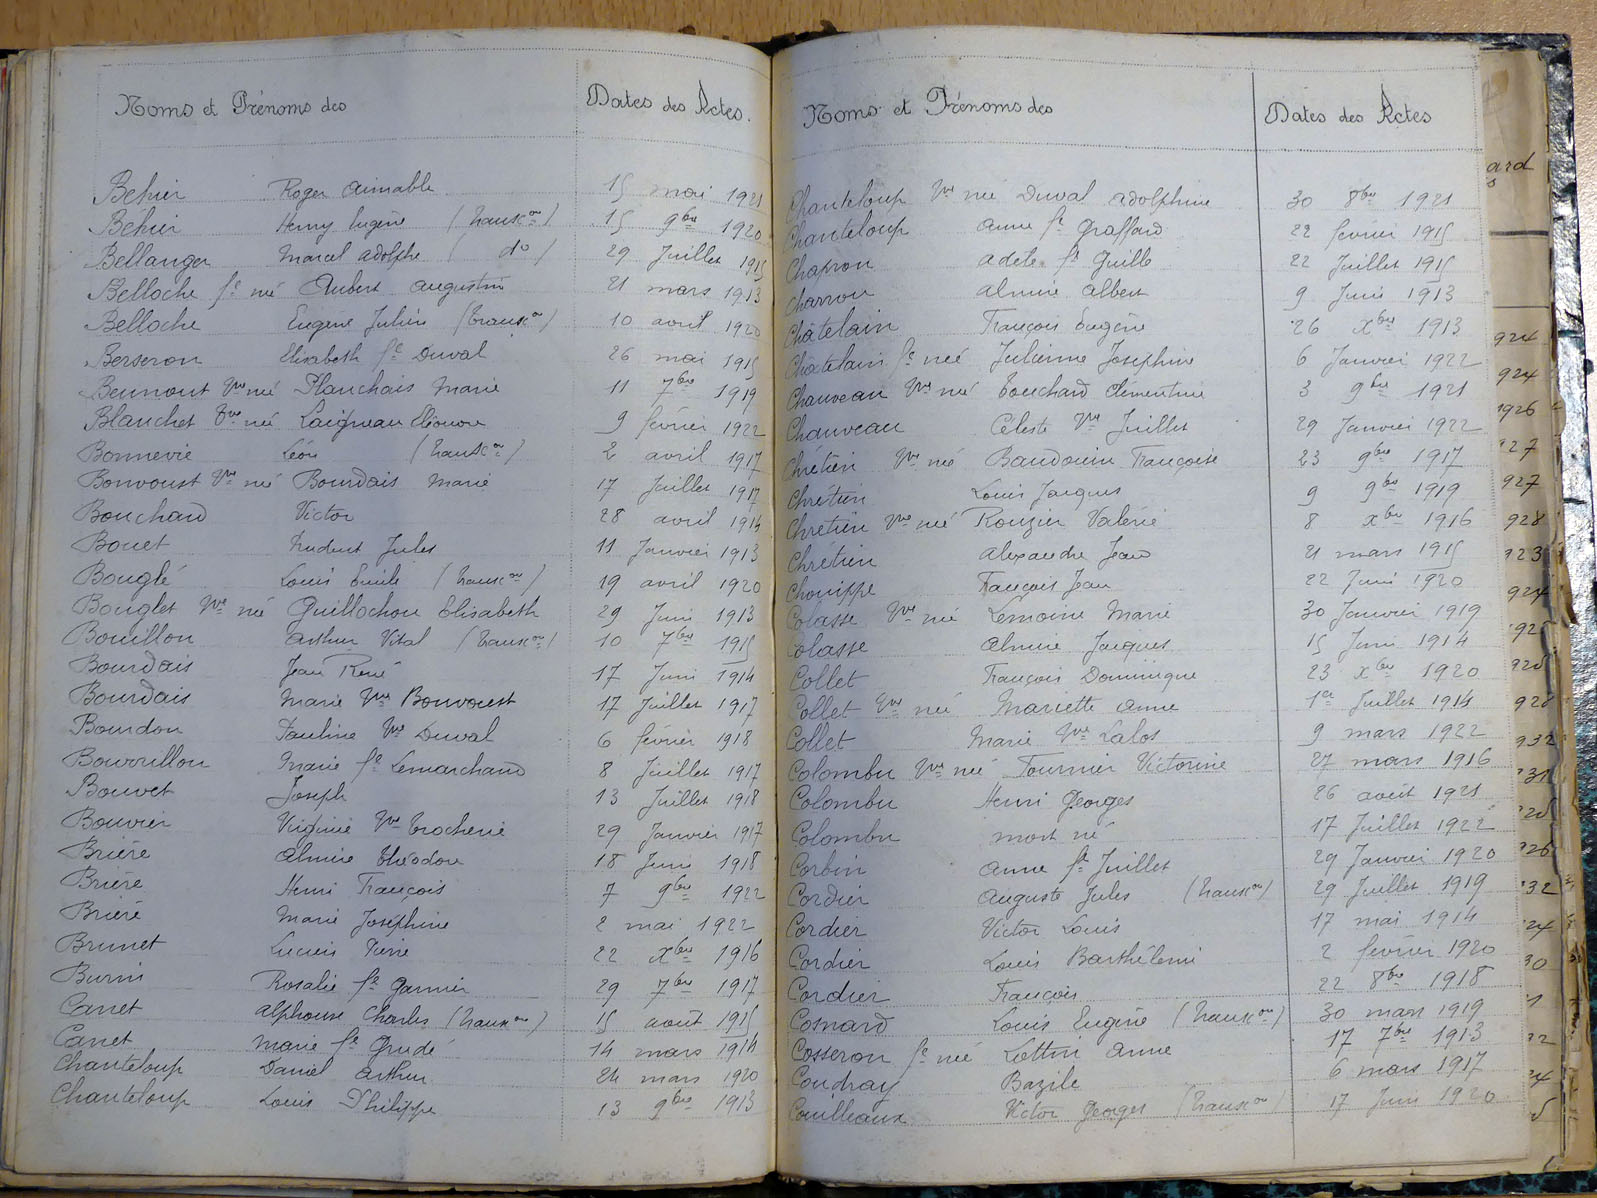 Noms et Prénoms des Dates des Actes.
Behier Roger Aimable 15 mai 1921
Behier Henry Eugène (Transcon) 15 9bre 1920
Bellanger Marcel Adolphe ( do ) 29 Juillet 1915
Belloche fe né Aubert Augustin 21 mars 1913
Belloche Eugène Julien (Transcon) 10 avril 1920
Berseron Elisabeth fe Duval 26 mai 1915
Beumont Vve né Planchais Marie 11 7bre 1919
Blanchet Vve né Laigneau Eléonore 9 février 1922
Bonnevie Léon (Transcon) 2 avril 1917
Bonvoust Vve né Bourdais Marie 17 Juillet 1917
Bouchard Victor 28 avril 1914
Bouet Prudent Jules 11 Janvier 1913
Bouglé Louis Emile (Transcon) 19 avril 1920
Bouglet Vve né Guillochon Elisabeth 29 Juin 1913
Bouillon Arthur Vital (Transcon) 10 7bre 1915
Bourdais Jean René 17 Juin 1914
Bourdais Marie Vve Bonvoust 17 Juillet 1917
Bourdon Pauline Vve Duval 6 février 1918
Bouvrillon Marie fe Lemarchand 8 Juillet 1917
Bouvet Joseph 13 Juillet 1918
Bouvier Virginie Vve Trocherie 29 Janvier 1917
Brière Almire Théodore 18 Juin 1918
Brière Henri François 7 9bre 1922
Brière Marie Joséphine 2 mai 1922
Brunet Lucien Pierre 22 xbre 1916
Burin Rosalie fe Garnier 29 7bre 1917
Canet Alphonse Charles (Transcon) 15 août 1915
Canet Marie fe Grudé 14 mars 1914
Chanteloup Daniel Arthur 24 mars 1920
Chanteloup Louis Philippe 13 9bre 1913
Noms et Prénoms des Dates des Actes
Chanteloup Vve né Duval Adolphine 30 8bre 1921
Chanteloup Anne fe Graffard 22 février 1915
Chapron Adèle fe Guille 22 Juillet 1915
Charron Almire Albert 9 Juin 1913
Châtelain François Eugène 26 xbre 1913
Châtelain fe née Julienne Josephine 6 Janvier 1922
Chauveau Vve né Touchard Clémentine 3 9bre 1921
Chauveau Celeste Vve Juillet 29 Janvier 1922
Chrétien Vve né Baudouin Françoise 23 9bre 1917
Chrétien Louis Jacques 9 9bre 1919
Chrétien Vve né Rouzier Valérie 8 xbre 1916
Chretien Alexandre Jean 21 mars 1915
Chouippe François Jean 22 Juin 1920
Colasse Vve né Lemoine Marie 30 Janvier 1919
Colasse Almire Jacques 15 Juin 1914
Collet François Dominique 23 xbre 1920
Collet Vve né Mariette Anne 1er Juillet 1914
Collet Marie Vve Lalos 9 mars 1922
Colombu Vve né Fournier Victorine 27 mars 1916
Colombu Henri Georges 26 août 1921
Colombu mort né 17 Juillet 1922
Corbin Anne fe Juillet 29 Janvier 1920
Cordier Auguste Jules (Transcon) 29 Juillet 1919
Cordier Victor Louis 17 mai 1914
Cordier Louis Barthélemi 2 février 1920
Cordier François 22 8bre 1918
Cosnard Louis Eugène (Transcon) 30 mars 1919
Cosseron fe née Lottin Anne 17 7bre 1913
Coudray Bazile 6 mars 1917
Couilleaux Victor Georges (Transcon) 17 Juin 1920
ard
s
924
924
1926
927
928
923
924